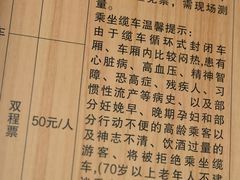 需现场测
乘坐缆车温馨提示:
由于缆车循环式封闭车
厢、车厢内比较闷热,患有
心脏病、高血压、精神智
障、恐高症、残疾人、习
惯性流产等病史、以及部
分妊娩早、晚期孕妇和部
分行动不便的高龄乘客以
及神志不清、饮酒过量的
游客、将被拒绝乘坐缆
车,(70岁以上老年人不建
双程票
50元/人